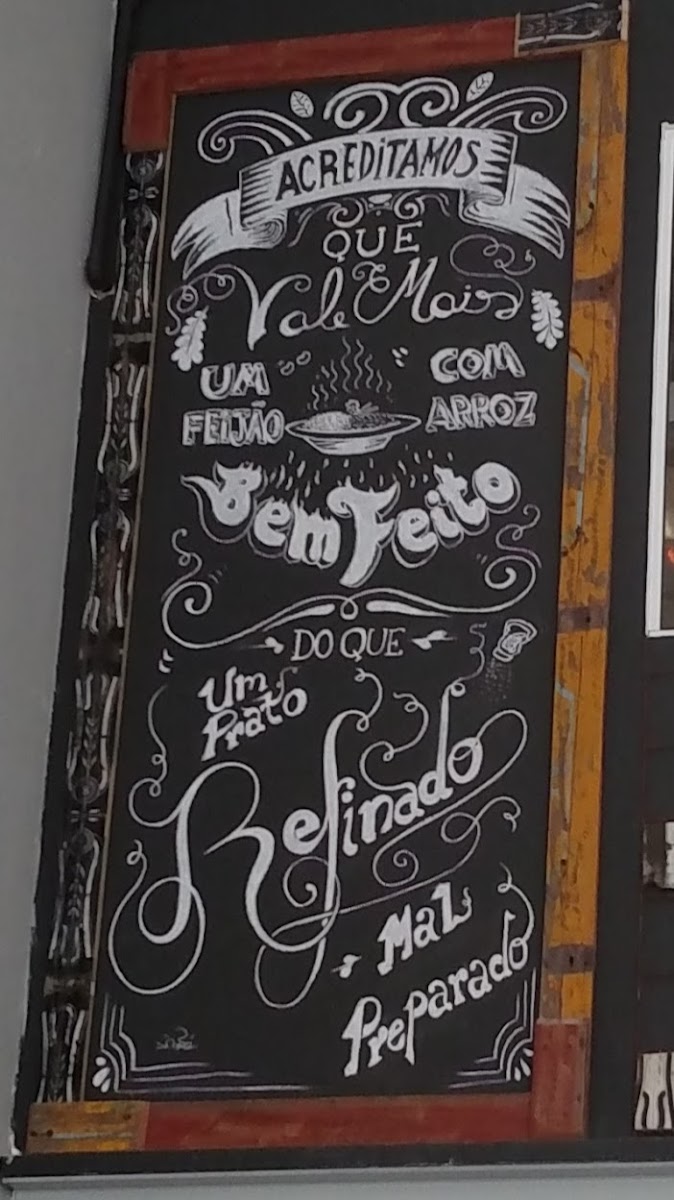 ACREDITAMOS
QUE
Vale Mais
UM COM
FEIJÃO ARROZ
Bem Feito
DO QUE
Um
Prato
Refinado
Mal
Preparado